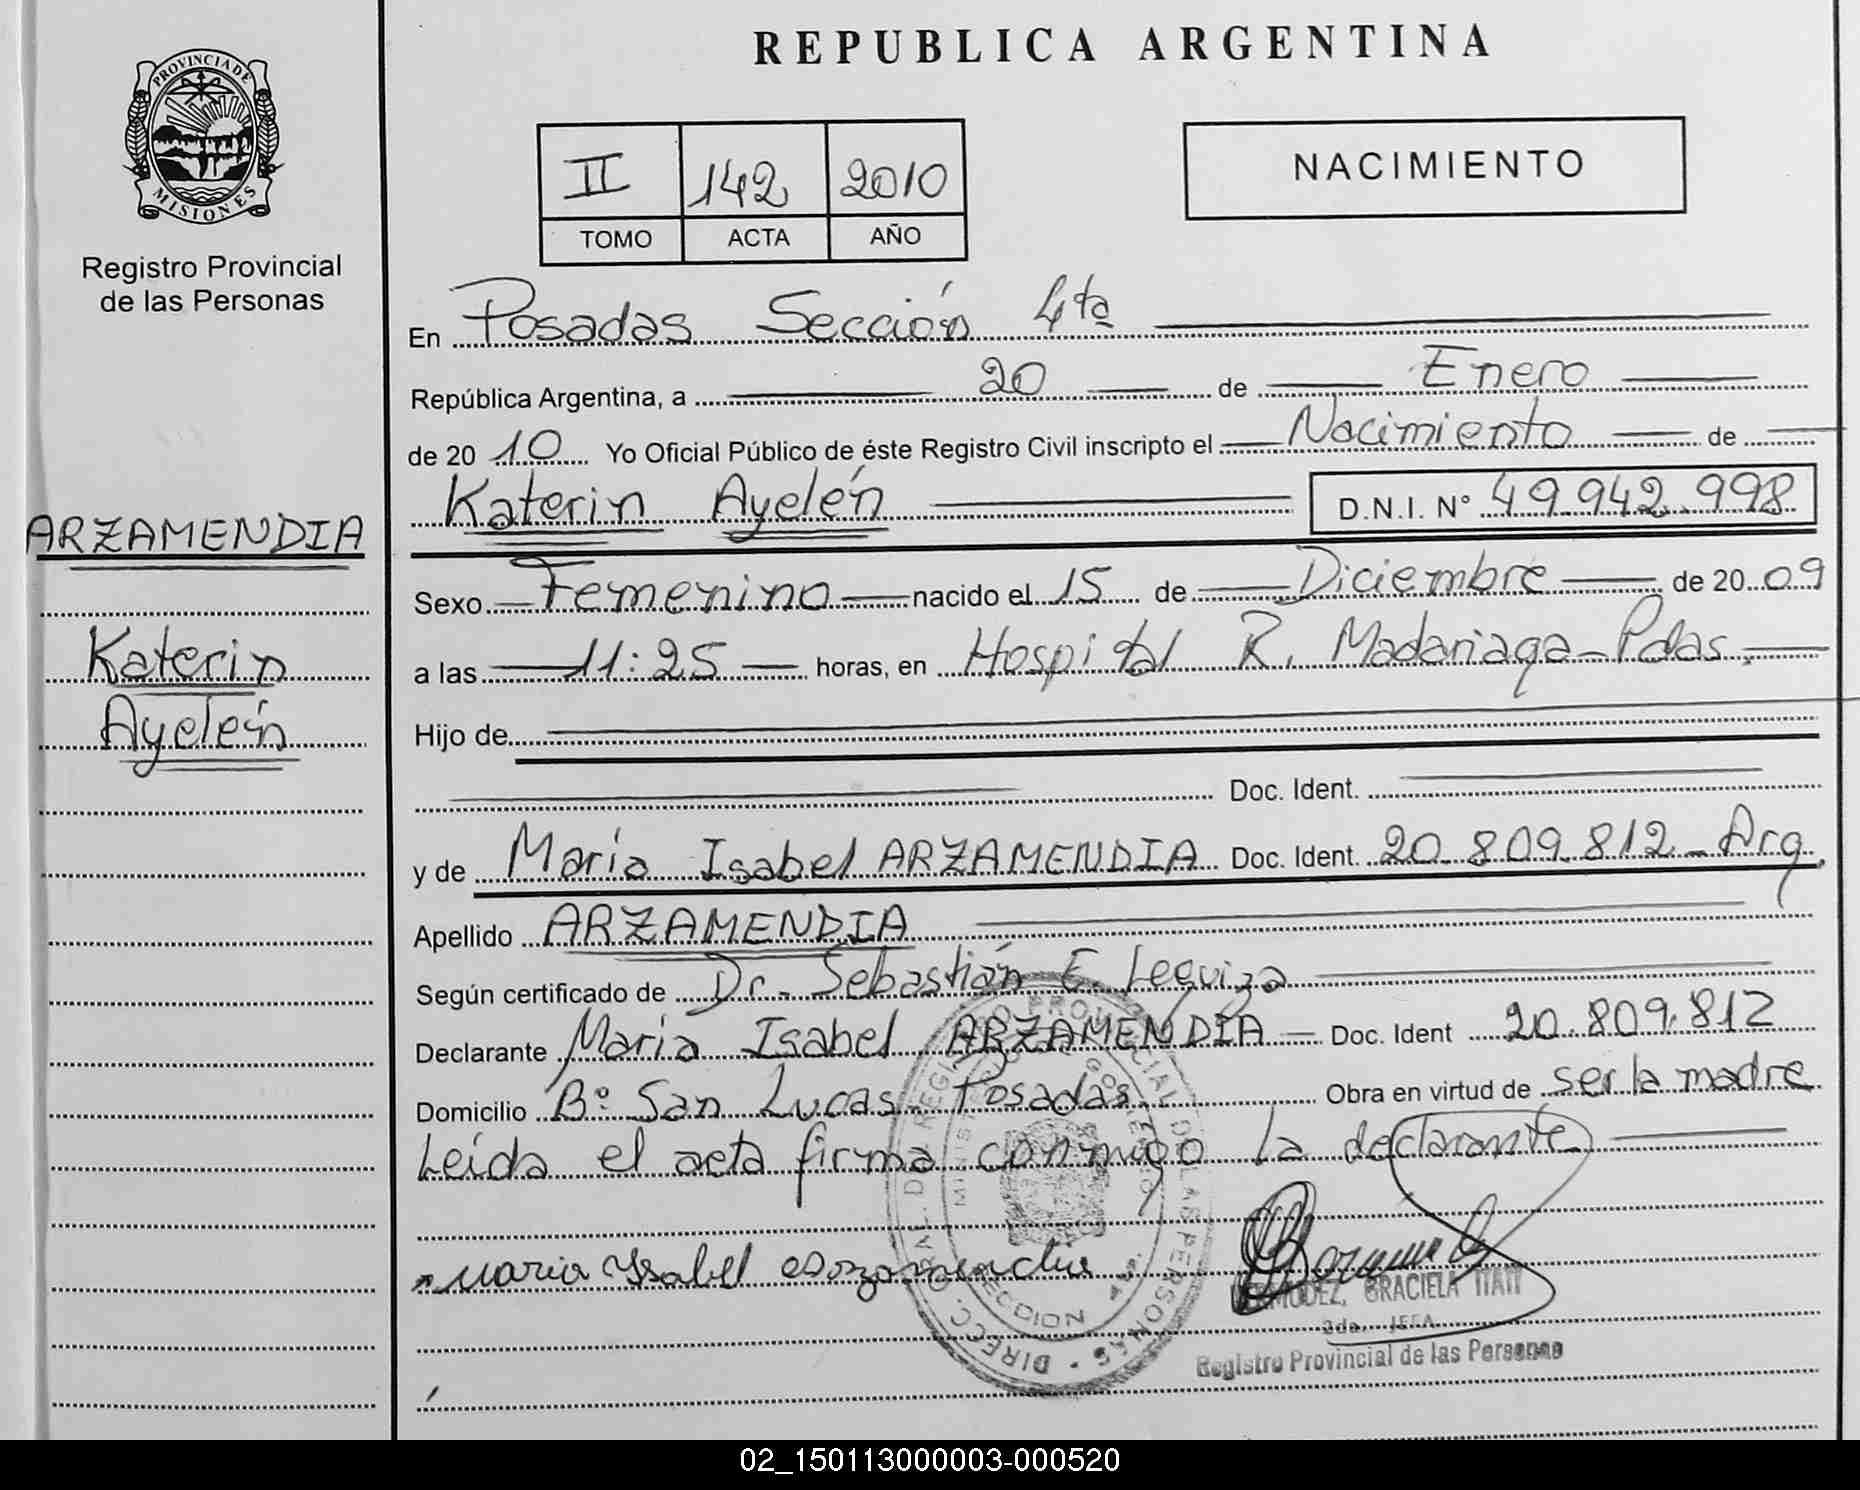 REPUBLICA ARGENTINA
PROVINCIA DE MISIONES
Registro Provincial
de las Personas
II 142 2010
TOMO ACTA AÑO
NACIMIENTO
En Posadas Sección 4ta
República Argentina, a 20 de Enero
de 20 10 Yo Oficial Público de éste Registro Civil inscripto el Nacimiento de
Katerin Ayelén D.N.I. N° 49.942.998
ARZAMENDIA
Katerin
Ayelén
Sexo Femenino nacido el 15 de Diciembre de 20 09
a las 11:25 horas, en Hospital R. Madariaga - Pdas.
Hijo de
Doc. Ident.
y de María Isabel ARZAMENDIA Doc. Ident. 20.809.812 - Arg.
Apellido ARZAMENDIA
Según certificado de Dr. Sebastián E. Leguiza
Declarante María Isabel ARZAMENDIA Doc. Ident 20.809.812
Domicilio B° San Lucas Posadas Obra en virtud de ser la madre
Leída el acta firma conmigo la declarante
Maria Ysabel
BERMUDEZ, GRACIELA ITATI
2da. JEFA
Registro Provincial de las Personas
DIRECC. GRAL. DEL REGISTRO PROVINCIAL DE LAS PERSONAS
02_150113000003-000520